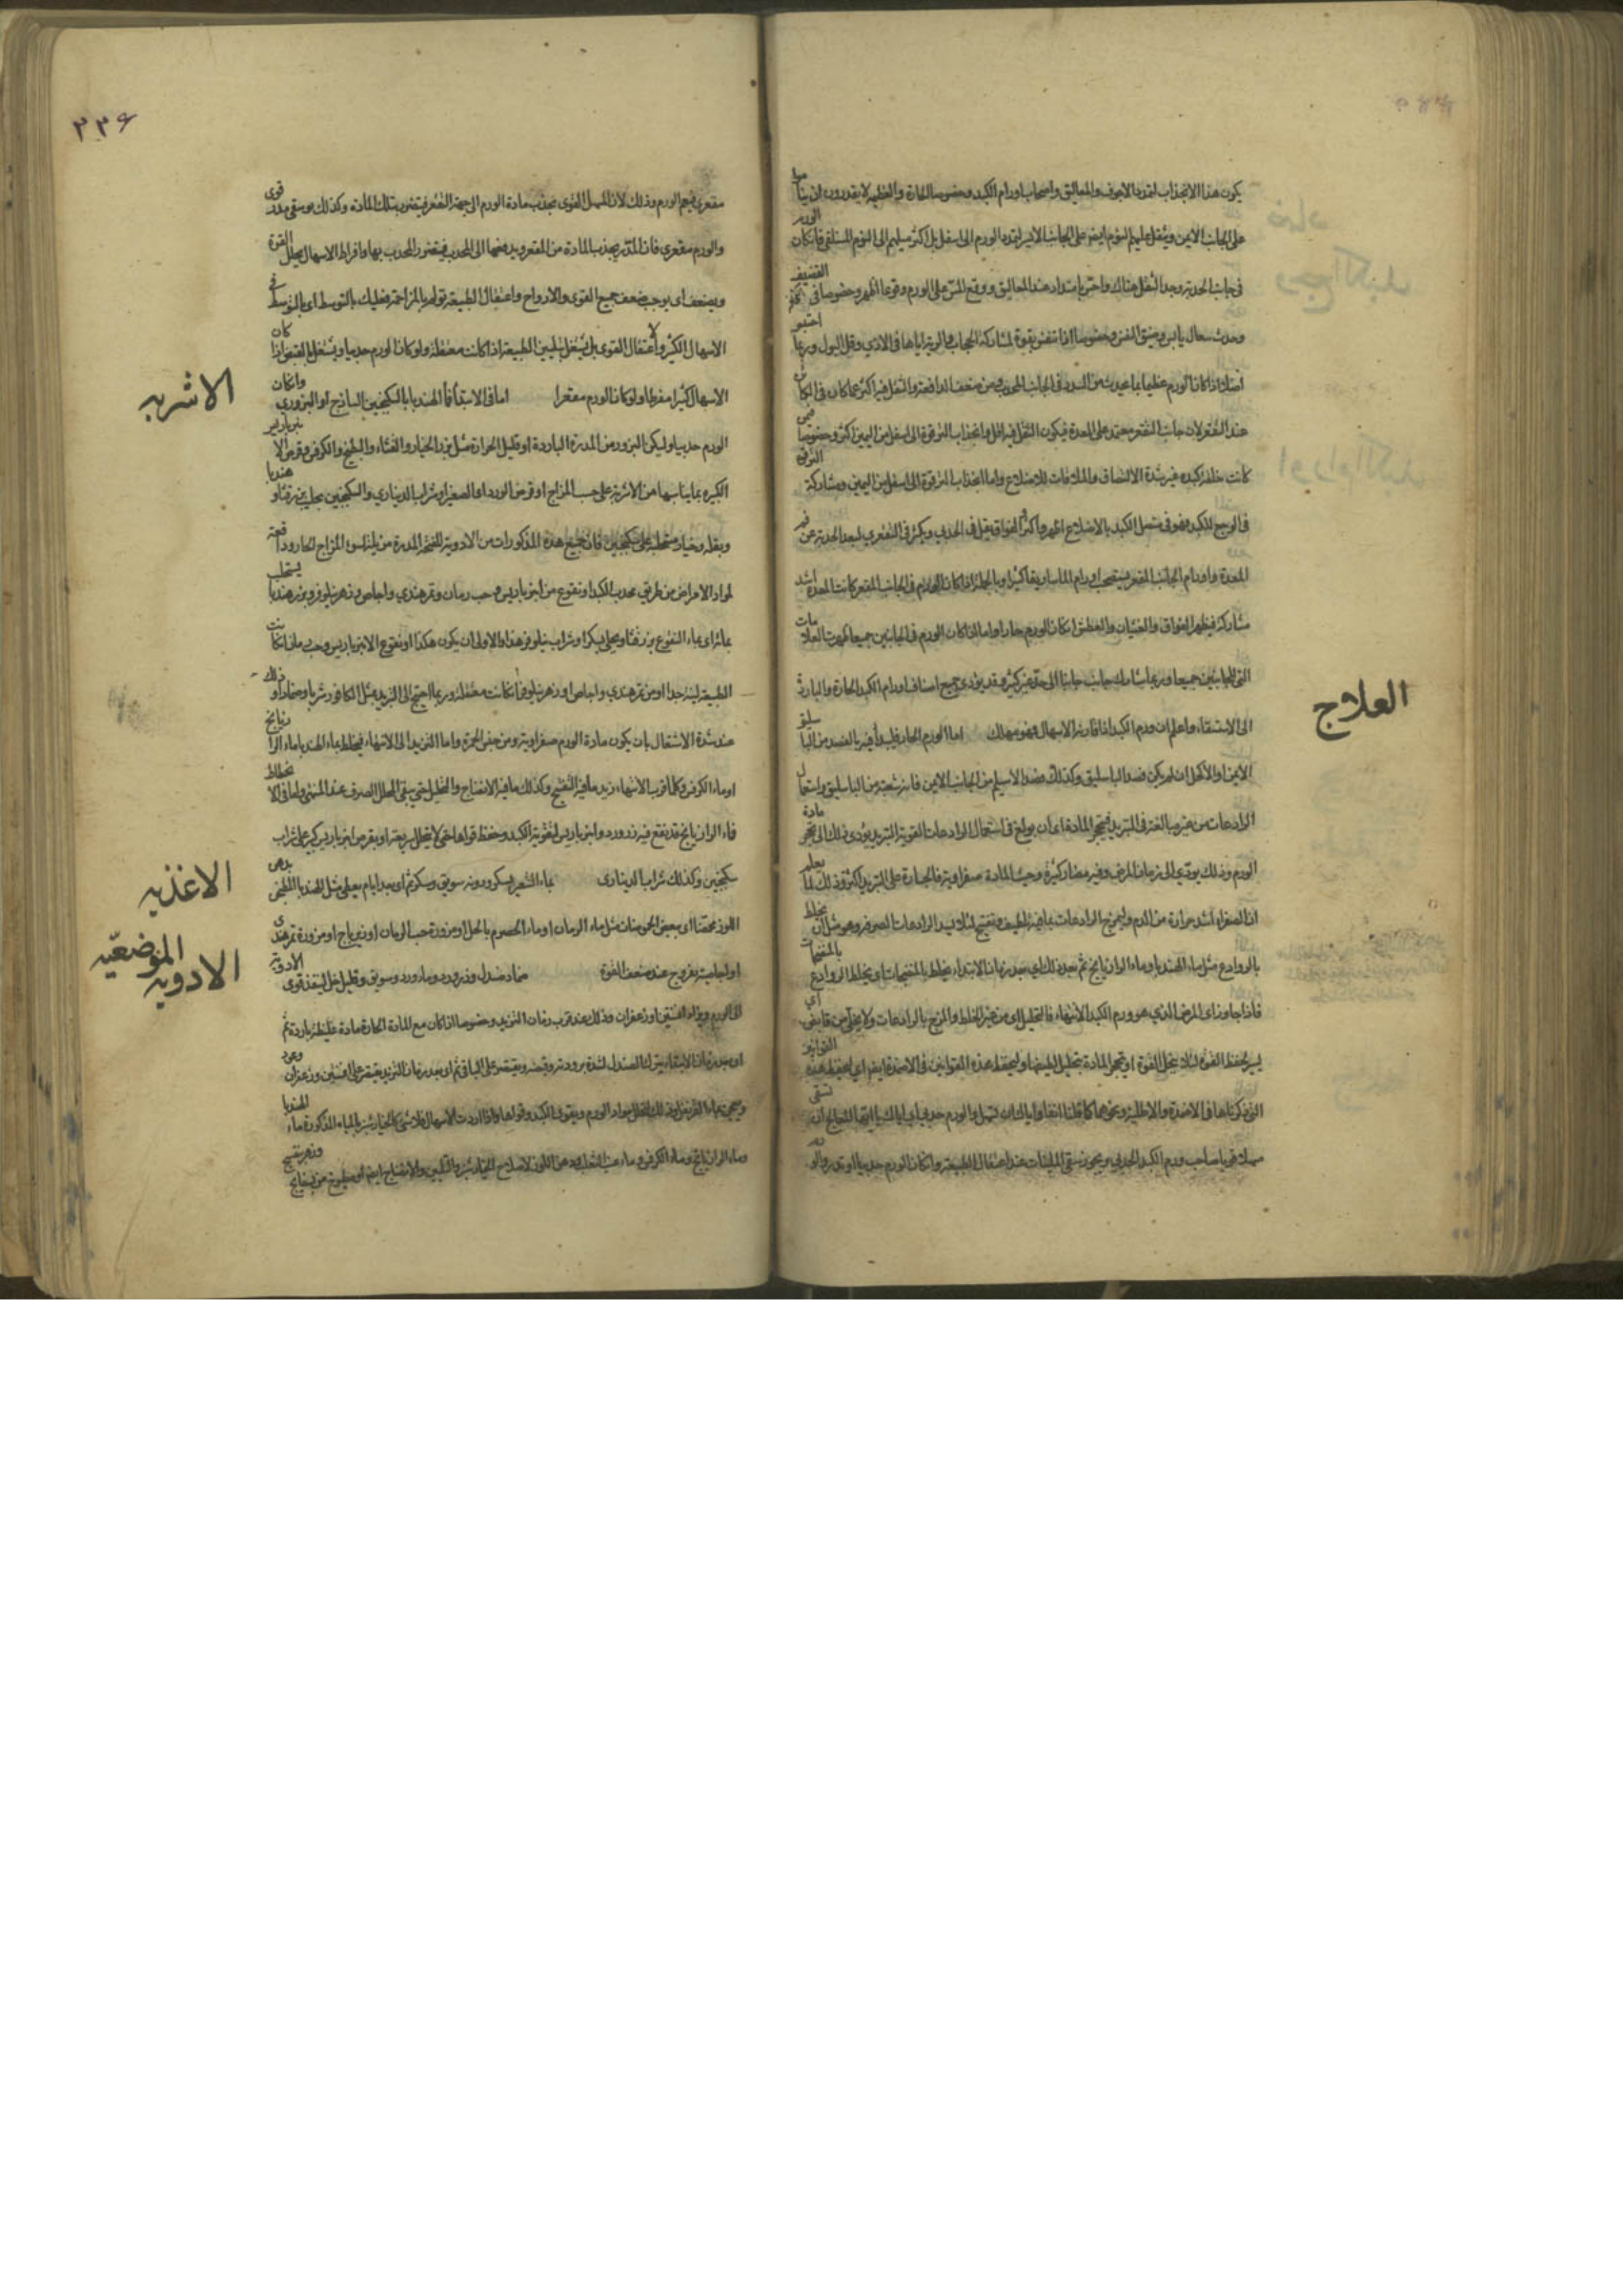 يكون هذا الانجذاب لتمدد الاجوف والمعاليق واصحاب اورام الكبد وخصوصا الحارة والعظيمة لا يقدرون ان يناموا
على الجانب الايمن ويثقل عليهم النوم ايضا على الجانب الايسر لتمدد الورم الى اسفل بل اكثر ميلهم الى النوم المستلقي فان كان الورم
في جانب الحدبة وجد الثقل هناك واحس بامتداد عند المعاليق ووقع المس على الورم وقوعا اظهر وخصوصا في القضيف
وحدث سعال يابس وضيق النفس وخصوصا اذا تنفس بقوة لمشاركة الحجاب والرية اياها في الاذى وقل البول وربما احتبس
اصلا اذا كان الورم عظيما لما يحدث من السدد في الجانب المحدب ومن ضعف الدافعة والثقل فيه اكثر مما كان في
عند التقعر لان جانب التقعر معتمد على المعدة فيكون الثقل فيه اقل وانجذاب الترقوة الى اسفل من اليمين اكثر وخصوصا فيمن
كانت خلقة كبده فيه شدة الالتصاق والملاقات للاضلاع واما انجذاب الترقوة الى اسفل من اليمين ومشاركة الترقوة
في الوجع للكبد فهو في متصل الكبد بالاضلاع اظهر واكثر والفواق يقل في الحدبي ويكثر في التقعري لبعد الحدبة عن فم
المعدة واورام الجانب المقعر يستصحب اورام الماساريقا كثيرا وبالجملة اذا كان الورم في الجانب المقعر كانت المعدة اشد
مشاركة فيظهر الفواق والغثيان والعطش ان كان الورم حارا واما اذا كان الورم في الجانبين جميعا ظهرت العلامات
التي للجانبين جميعا وربما شارك جانب جانبا الى حد غير كثير وقد يؤدي جميع اصناف اورام الكبد الحارة والباردة
الى الاستسقاء واعلم ان ورم الكبد اذا قارنه الاسهال فهو مهلك اما الورم الحار فليبدأ فيه بالفصد من الباسليق
العلاج
الايمن او الاكحل ان لم يكن فصد الباسليق وكذلك فصد الاسيلم من الجانب الايمن فانه شعبة من الباسليق واستعمال
الرادعات من غير مبالغة في التبريد فيتحجر المادة اي ان بولغ في استعمال الرادعات القوية التبريد يؤدي ذلك الى تحجر مادة
الورم وذلك يؤدي الى زمان المرض وفيه مضار كثيرة وحيث المادة صفراوية فالجسارة على التبريد اكثر وذلك لما يعلم
ان الصفراء اشد حرارة من الدم وليمزج الرادعات بما فيه تلطيف وتفتيح لئلا يسدد الرادعات الصرفة وهو مثل ان يخلط
بالروادع مثل ماء الهندبا وماء الرازيانج ثم بعد ذلك اي بعد زمان الابتداء يخلط بالمنضجات اي يخلط الروادع بالمنضجات
فاذا جاوز اي المرض الذي هو ورم الكبد الانتهاء فالتحليل اي من غير الخلط والمزج بالرادعات ولا يخلى من قابض اي
يسير يحفظ القوة لئلا ينحل القوة او يتحجر المادة بتحليل اللطيفها وليحفظ هذه القوانين في الاضمدة ايضا اي ليحفظ هذه القوانين
التي ذكرناها في الاضمدة والاطلية ونحوها كما قلنا انفا واياك ان تسهل والورم حدبي اي اياك يا ايها المعالج ان تسقى
مسهلا قويا صاحب ورم الكبد الحدبي ويجوز سقي الملينات عند اعتقال الطبيعة وان كان الورم حدبيا او تدر والورم
٣٣٤
مقعري فيعم الورم وذلك لان المسهل القوي يجذب مادة الورم الى جهة التقعر فيتضرر بتلك المادة وكذلك لو سقي مدر قوي
والورم مقعري فان المدر يجذب المادة من المقعر ويدفعها الى المحدب فيتضرر المحدب بها وافراط الاسهال يحلل القوة
ويضعف اي يوجب ضعف جميع القوى والارواح واعتقال الطبيعة يؤلم بالمزاحمة فعليك بالتوسط اي بالتوسط في
الاسهال الكثير ولا اعتقال القوى بل يشتغل بتليين الطبيعة اذا كانت معتقلة ولو كان الورم حدبيا ويشتغل بالقبض اذا كان
الاسهال كثيرا مفرطا ولو كان الورم مقعرا اما في الابتداء فماء الهندبا بالسكنجبين الساذج او البزوري وان كان
الاشربه
الورم حدبيا وليكن البزور من المدرة الباردة او قليل الحرارة مثل بزر الخيار والقثاء والبطيخ والكرفس وقرص الانبرباريس
الكبير بما يناسبها من الاشربة على حسب المزاج او قرص الورد الصغير او شراب الديناري والسكنجبين بحليب بزر قثاء وهندبا
وبقلة وخيار مستحلبة على سكنجبين فان جميع هذه المذكورات من الادوية المفتحة المدرة من يناسب المزاج الحار ودافعة
لمواد الامراض من طريق محدب الكبد او نقوع من انبرباريس وحب رمان وتمر هندي واجاص وزهر نيلوفر وبزر هندبا يستحلب
بمائه اي بماء النقوع بزر قثاء ويحلى بسكر او شراب نيلوفر هذا والاولى ان يكون هكذا او نقوع الانبرباريس وحب رمان ان كانت
الطبيعة لينة جدا او من تمر هندي واجاص وزهر نيلوفر ان كانت معتقلة وربما احتيج الى التبريد بمثل الكافور شربا وضمادا وذلك
عند شدة الاشتعال بان يكون مادة الورم صفراوية ومن جنس الحمرة واما التزيد الى الانتهاء فيخلط بماء الهندبا ماء الرازيانج
او ماء الكرفس وكلما قرب الانتهاء زيد ما فيه التفتيح وكذلك ما فيه الانضاج والتحليل حتى يبقى المحلل الصرف عند المنتهى واما في الانحطاط
فماء الرازيانج قد نقع فيه زر ورد وانبرباريس لتقوية الكبد وحفظ قواها حتى لا يتحلل سريعة او بقرص انبرباريس كبير على شراب
سكنجبين وكذلك شراب الديناري بماء الشعير بسكر ودونه سويق وسكر ثم اي بعد ايام يعطى مثل الهندبا المطجن بدهن
الاغذيه
اللوز محمضا اي ببعض الحموضات مثل ماء الرمان او ماء الحصرم بالخل او مزورة حب الرمان او زيرباج او مزورة تمر هندي
او اجاصية بفروج عند ضعف القوة ضماد صندل وزر ورد وماء ورد وسويق وقليل خل لينفذ قوى الادوية
الادويه الموضعيّه
الى الورم ويزاد افسنتين او زعفران وذلك عند قرب زمان التزيد وخصوصا اذا كان مع المادة الحارة مادة غليظة باردة ثم
اي بعد زمان الابتداء يترك الصندل لشدة برودته وقبضه ويقتصر على الباقي ثم اي بعد زمان التزيد يقتصر على افسنتين وزعفران وعود
وماء الرازيانج وماء الكرفس وماء عنب الثعلب ودهن اللوز لاصلاح الخيارشنبر والتليين والانضاج ايضا او مطبوخ من بسفايج وزهر بنفسج